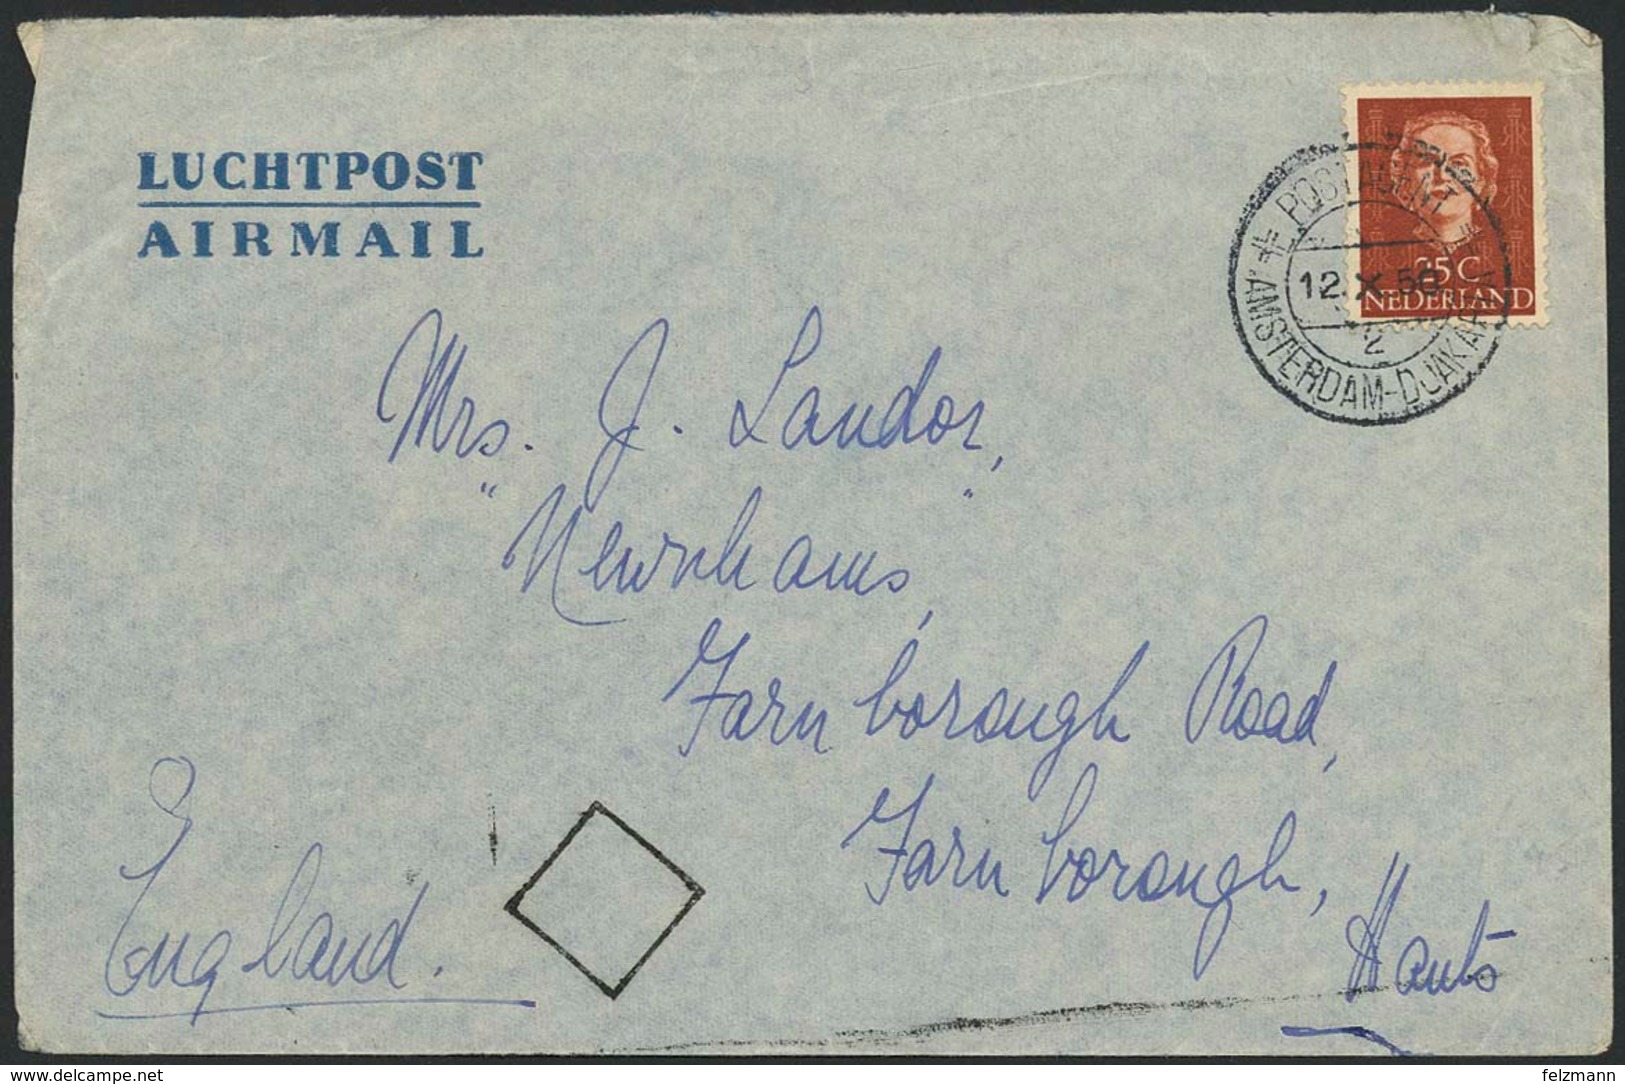 LUCHTPOST
AIRMAIL
POSTAGENT
12.X.50
2
AMSTERDAM-DJAKARTA
25C
NEDERLAND
Mrs. J. Landor,
"Newnhams",
Farnborough Road,
Farnborough,
Hants
England.
delcampe.net
felzmann